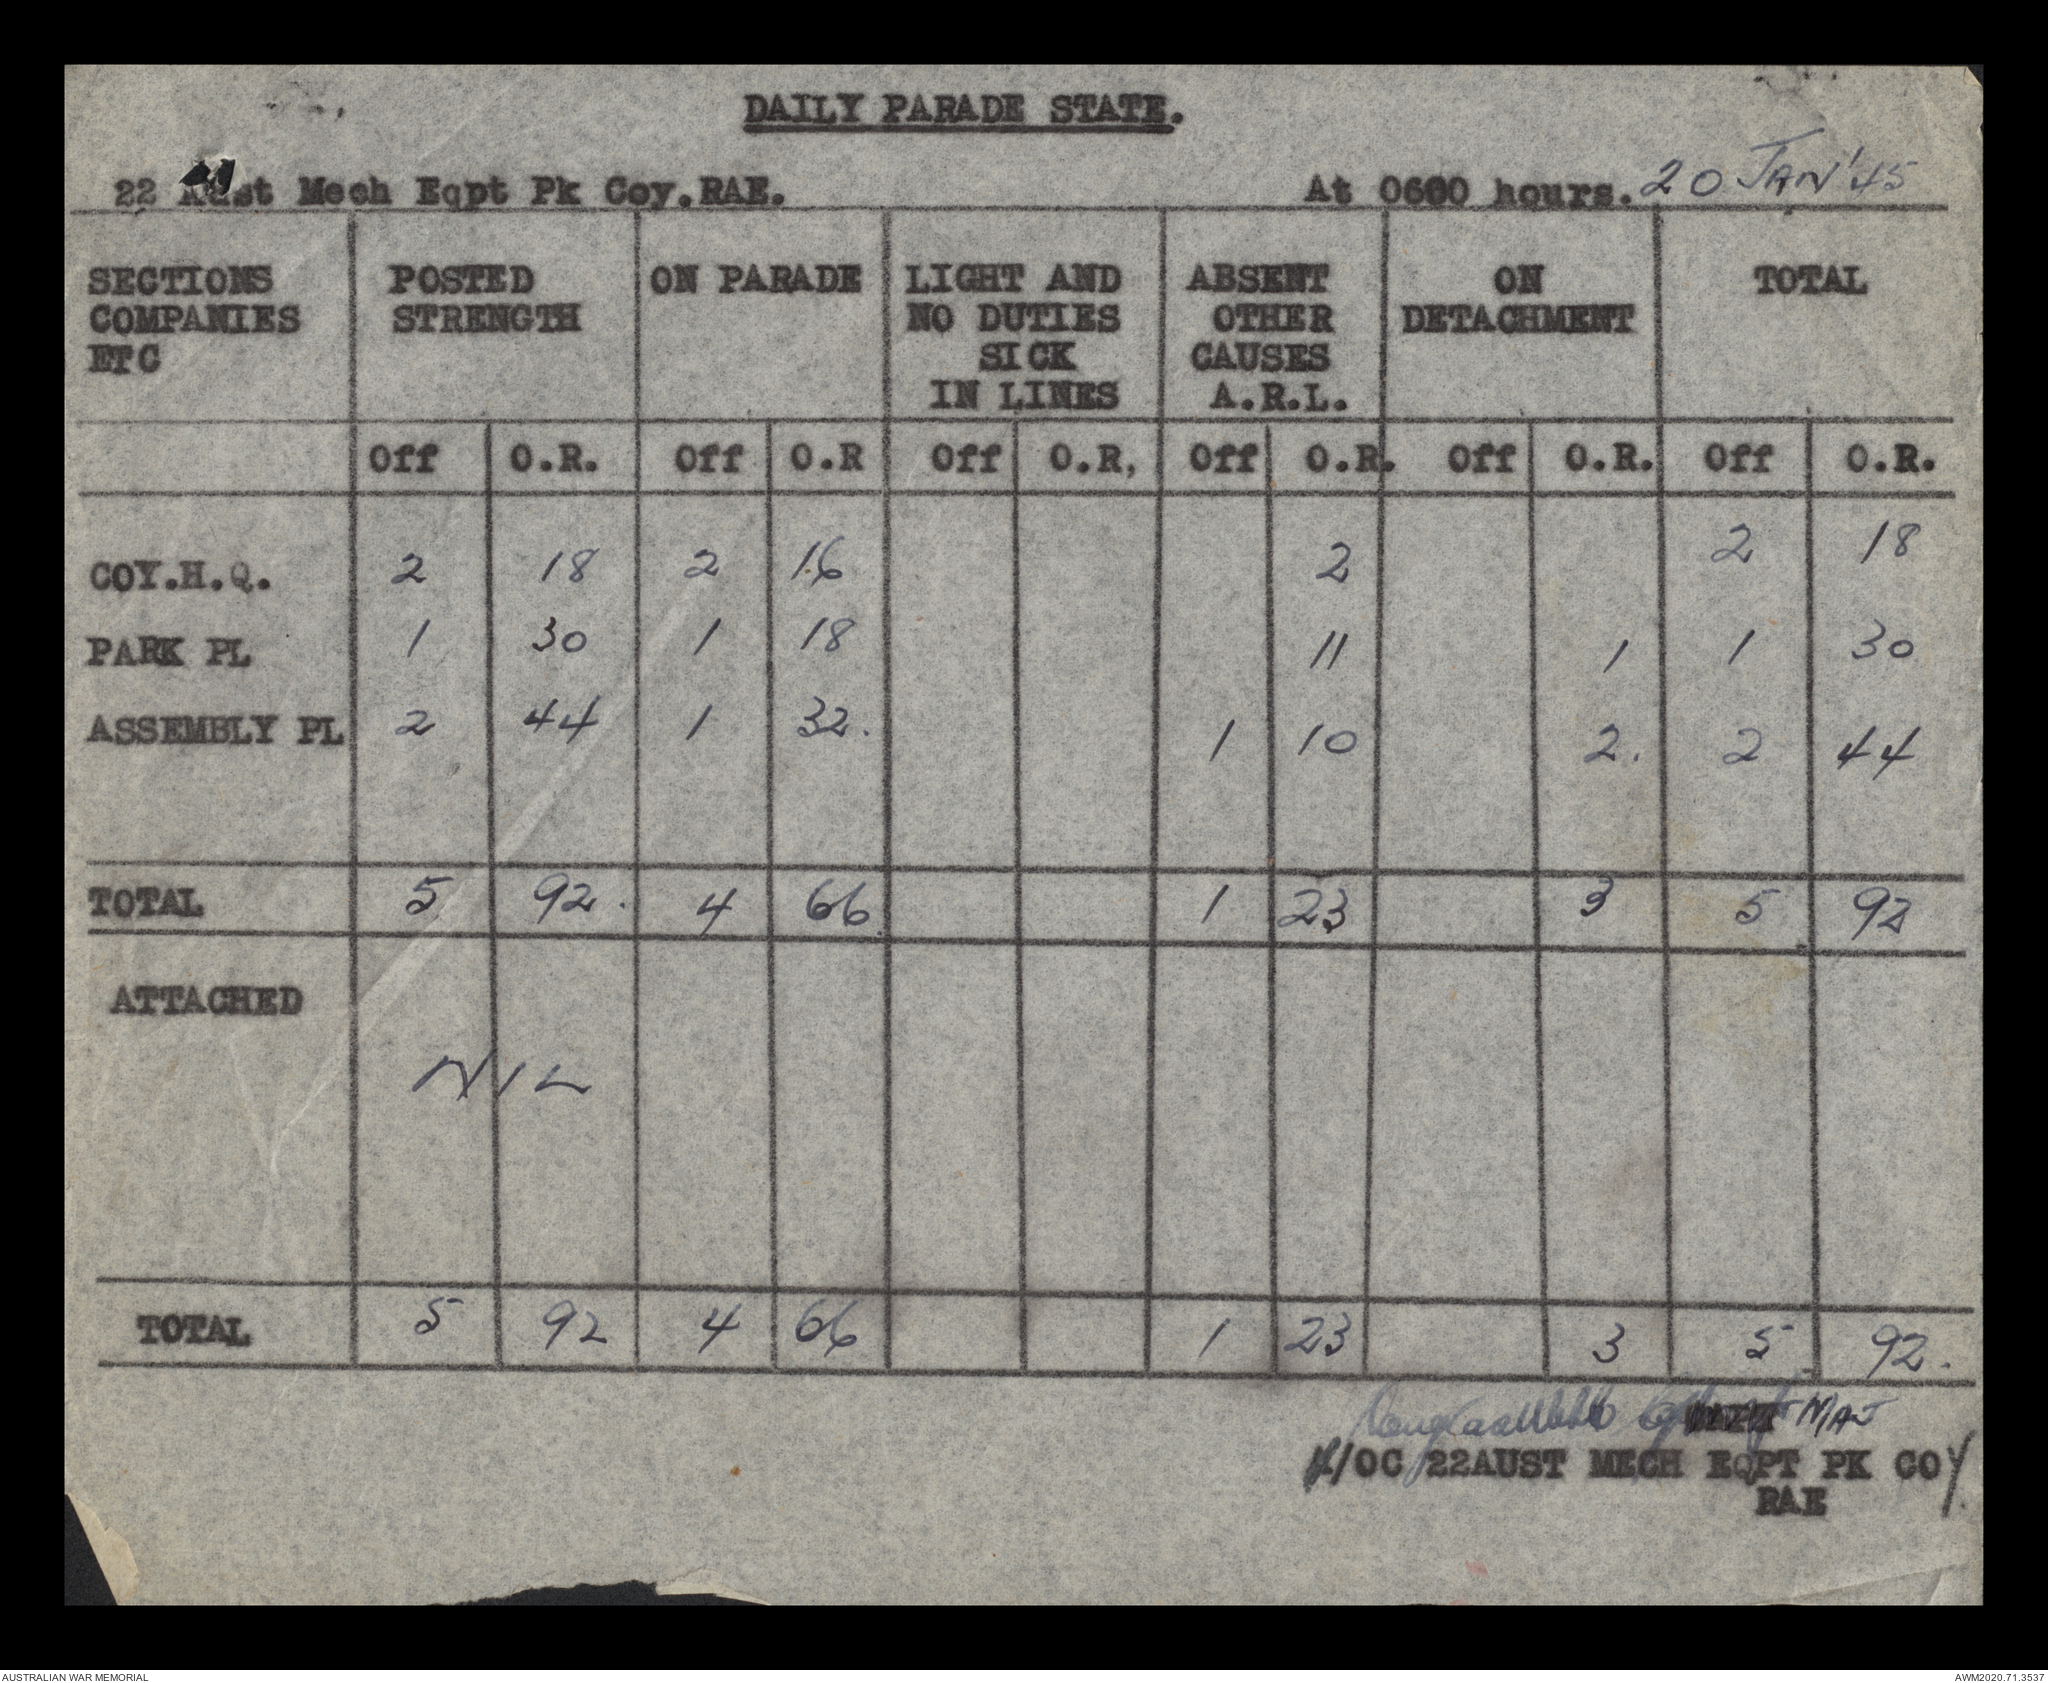 DAILY PARADE STATE.
22 Aust Mech Eqpt Pk Coy.RAE. At 0600 hours. 20 JAN '45
SECTIONS COMPANIES ETC POSTED STRENGTH ON PARADE LIGHT AND NO DUTIES SICK IN LINES ABSENT OTHER CAUSES A.R.L. ON DETACHMENT TOTAL
Off O.R. Off O.R Off O.R, Off O.R. Off O.R. Off O.R.
COY.H.Q. 2 18 2 16 2 2 18
PARK PL 1 30 1 18 11 1 1 30
ASSEMBLY PL 2 44 1 32. 1 10 2. 2 44
TOTAL 5 92. 4 66 1 23 3 5 92
ATTACHED
NIL
TOTAL 5 92 4 66 1 23 3 5 92.
/OC 22AUST MECH EQPT PK COY
RAE
AUSTRALIAN WAR MEMORIAL AWM2020.71.3537